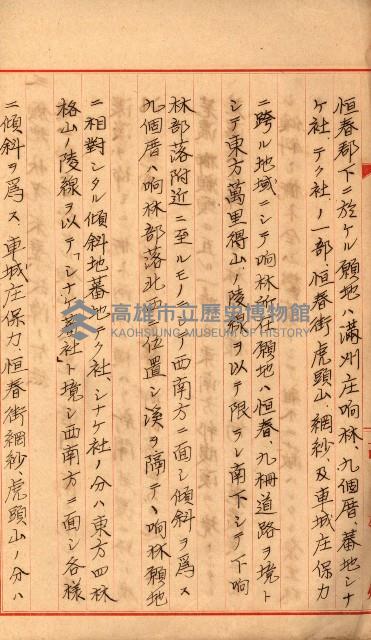 恒春郡下ニ於ケル願地ハ滿州庄响林、九個厝、蕃地シナ
ケ社、テク社ノ一部、恒春街虎頭山、網紗及車城庄保力
ニ跨ル地域ニシテ响林所願地ハ恒春、九棚道路ヲ境ト
シテ東方萬里得山ノ陵線ヲ以テ限ラレ南下シテ下响
林部落附近ニ至ルモノ西南方ニ面シ傾斜ヲ爲ス
九個厝ハ响林部落北西位置シ溪ヲ隔テ、响林願地
ニ相對シタル傾斜地蕃地テク社、シナケ社ノ分ハ東方四林
格山ノ陵線ヲ以テ「シナケ社」ト境シ西南方ニ面シ各樣
ニ傾斜ヲ爲ス、車城庄保力、恒春街網紗、虎頭山ノ分ハ
高雄市立歷史博物館
KAOHSIUNG MUSEUM OF HISTORY